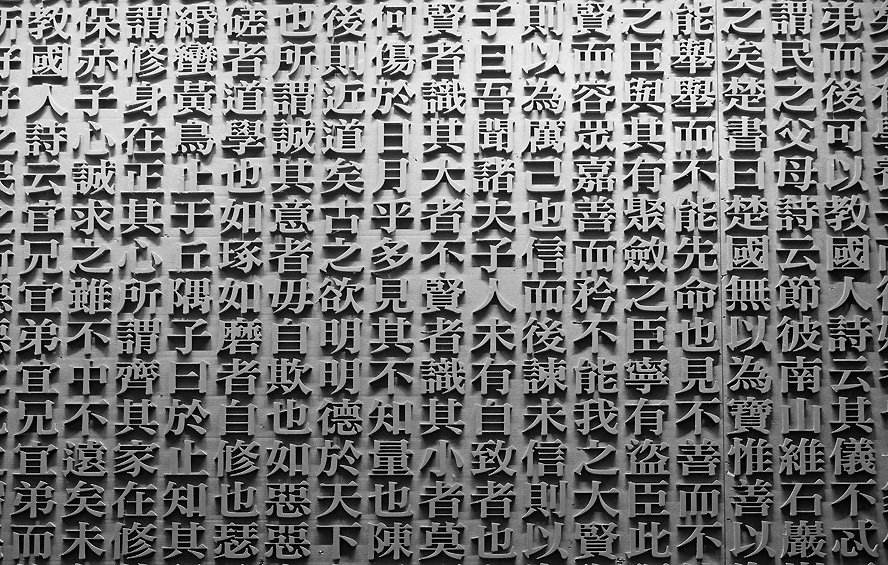 弟而後可以教國人詩云其儀不忒
謂民之父母詩云節彼南山維石巖
之矣楚書曰楚國無以為寶惟善以
能舉舉而不能先命也見不善而不
之臣與其有聚斂之臣寧有盜臣此
賢而容眾嘉善而矜不能我之大賢
則以為厲己也信而後諫未信則以
子曰吾聞諸夫子人未有自致者也
賢者識其大者不賢者識其小者莫
何傷於日月乎多見其不知量也陳
後則近道矣古之欲明明德於天下
也所謂誠其意者毋自欺也如惡惡
磋者道學也如琢如磨者自修也瑟
緡蠻黃鳥止于丘隅子曰於止知其
謂修身在正其心所謂齊其家在修
保赤子心誠求之雖不中不遠矣未
教國人詩云宜兄宜弟宜兄宜弟而